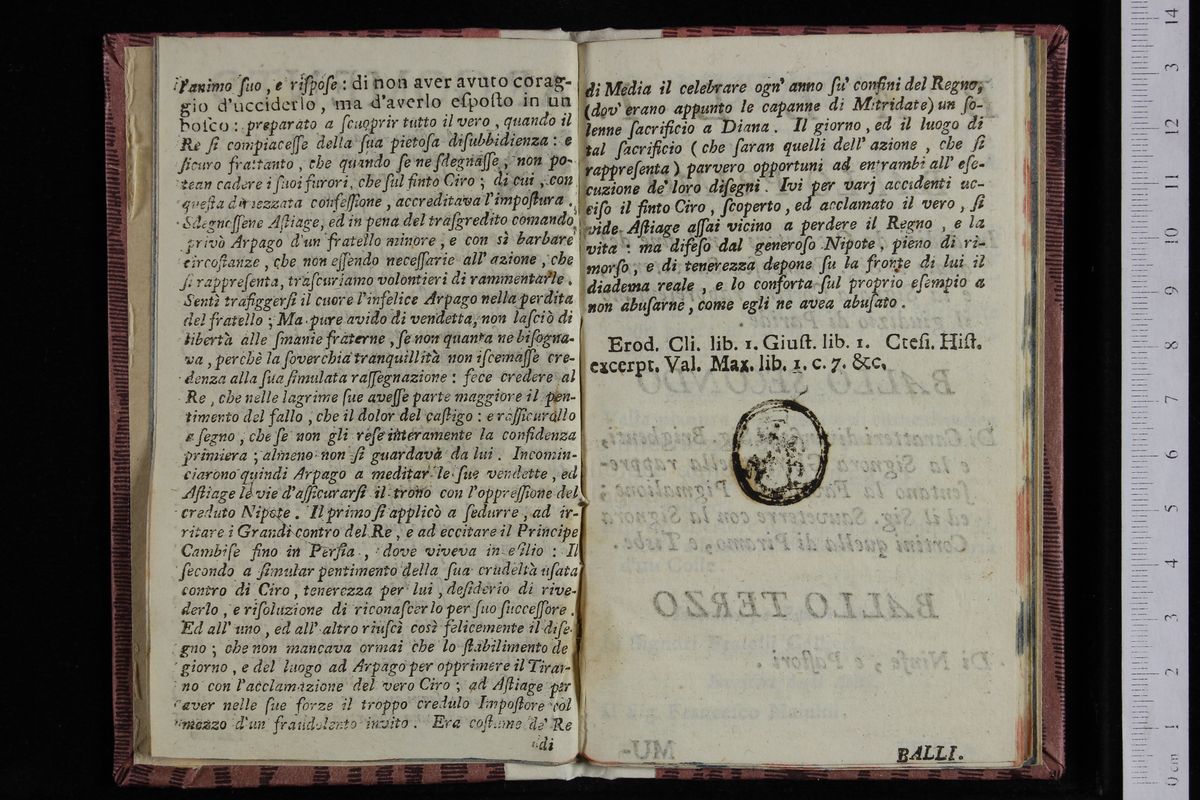 l'animo ſuo, e riſpoſe: di non aver avuto corag-
gio d'ucciderlo, ma d'averlo eſpoſto in un
boſco: preparato a ſcuoprir tutto il vero, quando il
Re ſi compiaceſſe della ſua pietoſa diſubbidienza: e
ſicuro frattanto, che quando ſe ne ſdegnaſſe, non po-
tean cadere i ſuoi furori, che ſul finto Ciro; di cui, con
queſta dimezzata confeſſione, accreditava l'impoſtura.
Sdegnoſſene Aſtiage, ed in pena del traſgredito comando
privò Arpago d'un fratello minore, e con sì barbare
circoſtanze, che non eſſendo neceſſarie all' azione, che
ſi rappreſenta, traſcuriamo volontieri di rammentarle.
Sentì trafiggerſi il cuore l'infelice Arpago nella perdita
del fratello; Ma pure avido di vendetta, non laſciò di
libertà alle ſmanie fraterne, ſe non quanta ne biſogna-
va, perchè la ſoverchia tranquillità non iſcemaſſe cre-
denza alla ſua ſimulata raſſegnazione: fece credere al
Re, che nelle lagrime ſue aveſſe parte maggiore il pen-
timento del fallo, che il dolor del caſtigo: e raſſicurollo
a ſegno, che ſe non gli reſe interamente la confidenza
primiera; almeno non ſi guardava da lui. Incomin-
ciarono quindi Arpago a meditar le ſue vendette, ed
Aſtiage le vie d'aſſicurarſi il trono con l'oppreſſione del
creduto Nipote. Il primo ſi applicò a ſedurre, ad ir-
ritare i Grandi contro del Re, e ad eccitare il Principe
Cambiſe fino in Perſia, dove viveva in eſilio: Il
ſecondo a ſimular pentimento della ſua crudeltà uſata
contro di Ciro, tenerezza per lui, deſiderio di rive-
derlo, e riſoluzione di riconaſcerlo per ſuo ſucceſſore.
Ed all' uno, ed all' altro riuſcì così felicemente il diſe-
gno; che non mancava ormai che lo ſtabilimento de
giorno, e del luogo ad Arpago per opprimere il Tiran-
no con l'acclamazione del vero Ciro; ad Aſtiage per
aver nelle ſue forze il troppo credulo Impoſtore col
mezzo d'un fraudolento invito. Era coſtume de' Re
di
di Media il celebrare ogn' anno ſu' confini del Regno,
(dov' erano appunto le capanne di Mitridate) un ſo-
lenne ſacrificio a Diana. Il giorno, ed il luogo di
tal ſacrificio (che ſaran quelli dell' azione, che ſi
rappreſenta) parvero opportuni ad entrambi all' eſe-
cuzione de' loro diſegni. Ivi per varj accidenti uc-
ciſo il finto Ciro, ſcoperto, ed acclamato il vero, ſi
vide Aſtiage aſſai vicino a perdere il Regno, e la
vita: ma difeſo dal generoſo Nipote, pieno di ri-
morſo, e di tenerezza depone ſu la fronte di lui il
diadema reale, e lo conforta ſul proprio eſempio a
non abuſarne, come egli ne avea abuſato.
Erod. Cli. lib. 1. Giuſt. lib. 1. Cteſi. Hiſt.
excerpt. Val. Max. lib. 1. c. 7. &c.
BALLI.